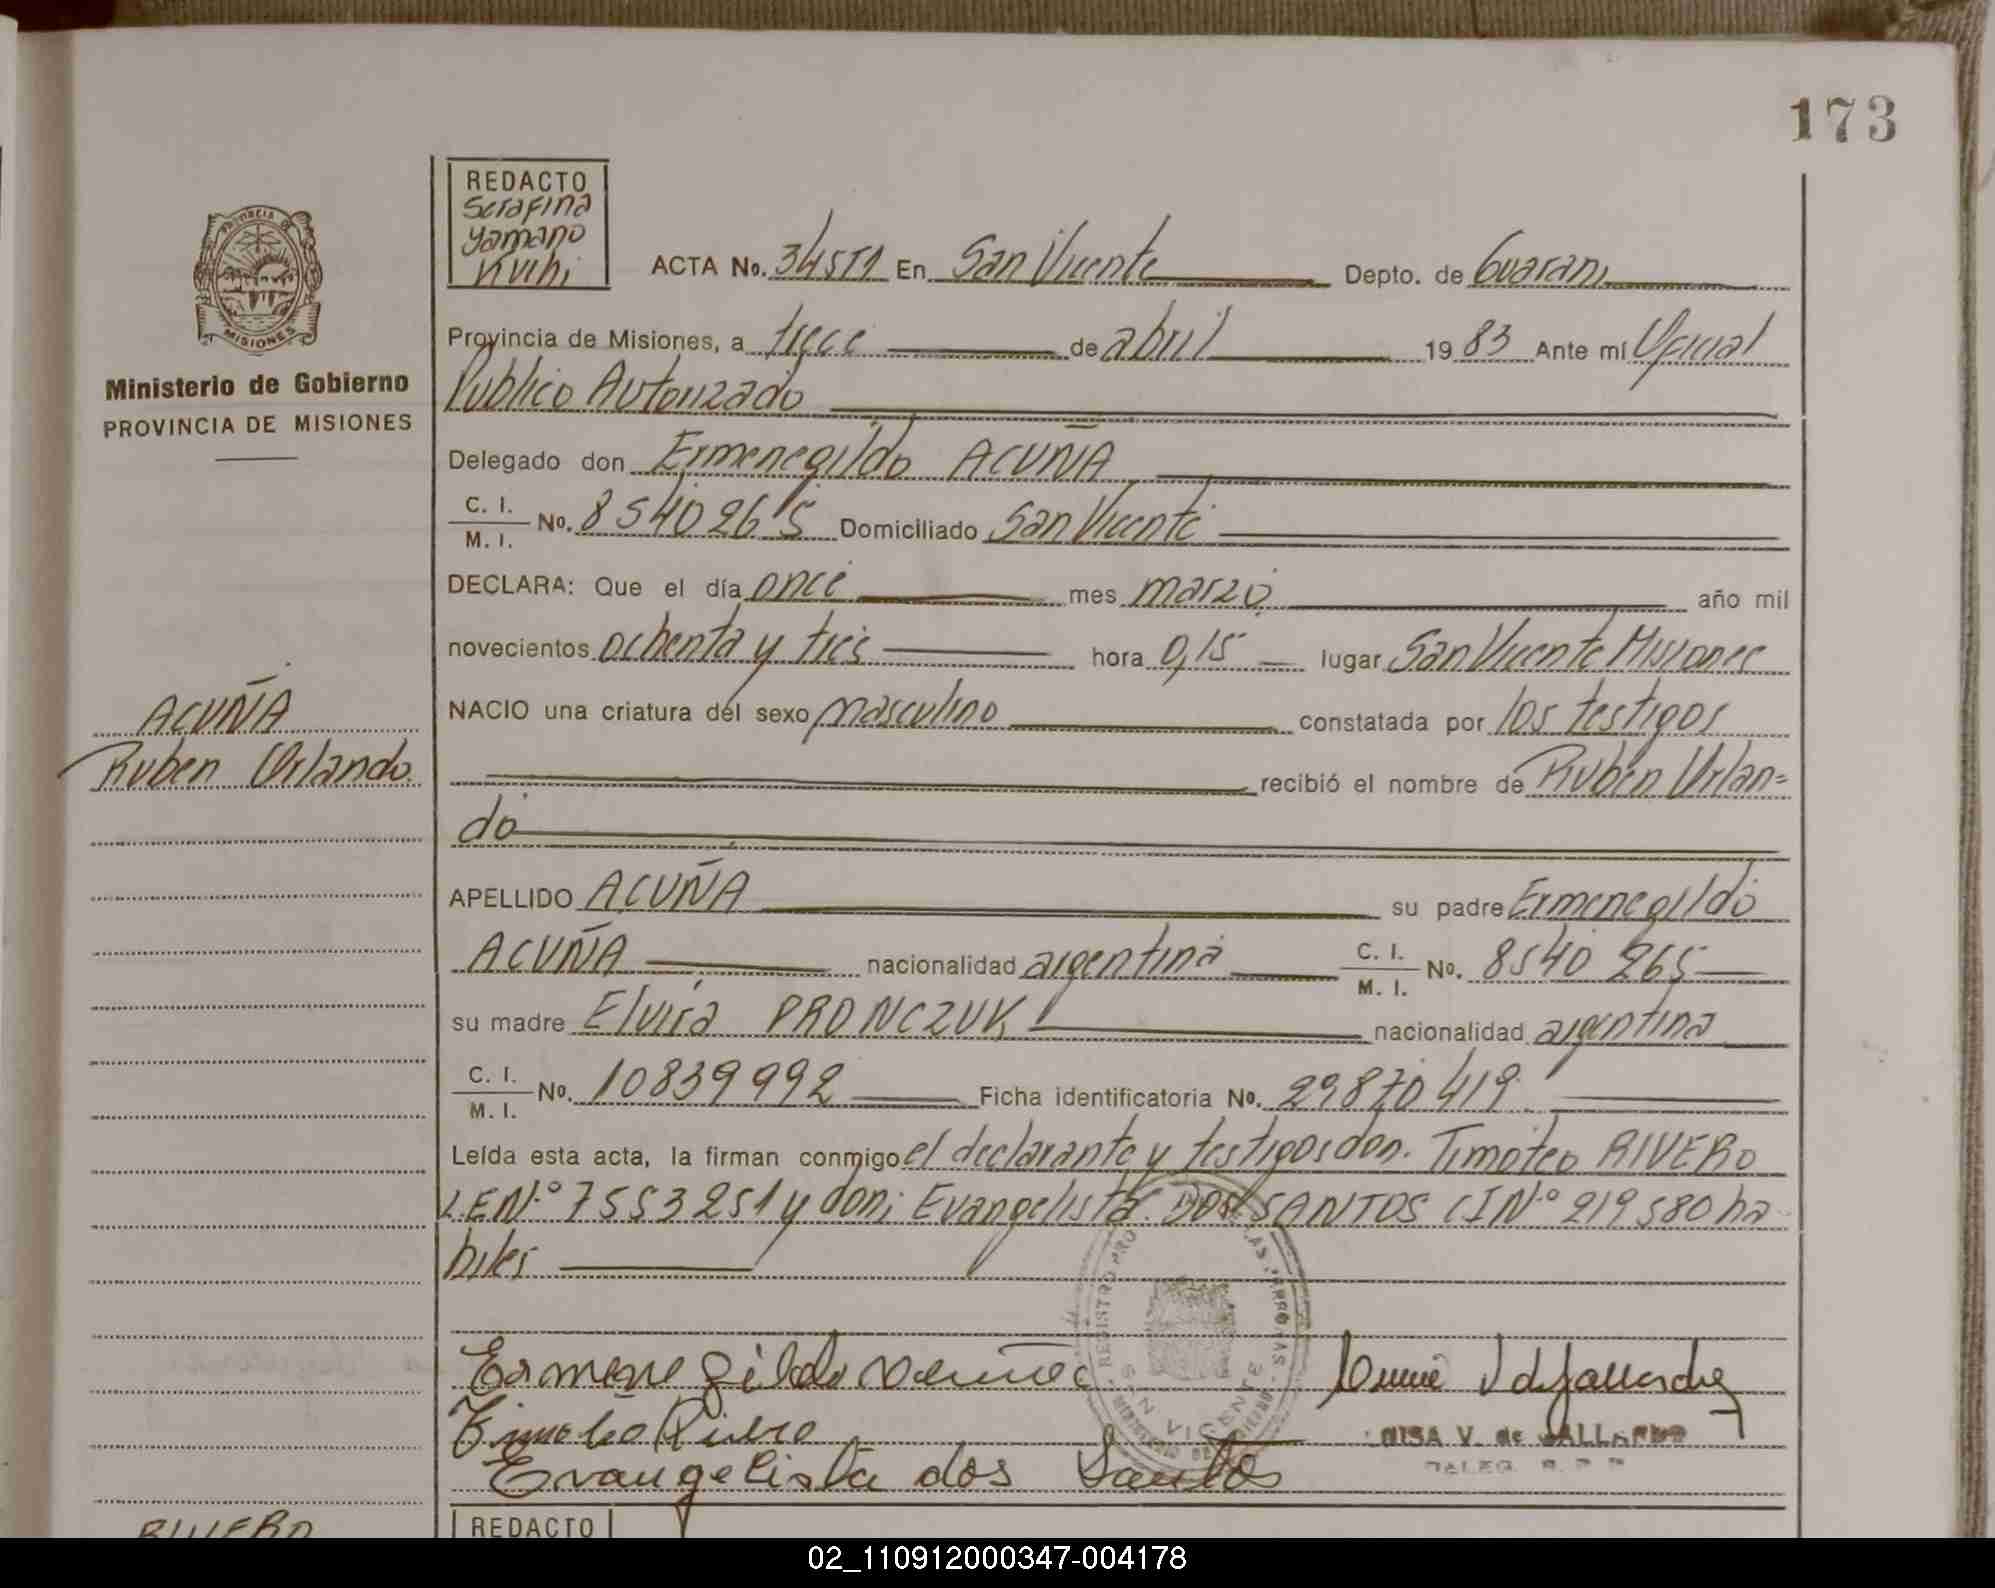 173
REDACTO
Serafina
Yamano
Kuihi
PROVINCIA DE
MISIONES
Ministerio de Gobierno
PROVINCIA DE MISIONES
ACTA No. 345T1 En San Vicente Depto. de Guarani
Provincia de Misiones, a trece de abril 1983 Ante mí Oficial
Publico Autorizado
Delegado don Ermenegildo ACUÑA
C. I. M. I. No. 8540265 Domiciliado San Vicente
DECLARA: Que el día once mes marzo año mil
novecientos ochenta y tres hora 0,15 lugar San Vicente Misiones
NACIO una criatura del sexo masculino constatada por los testigos
ACUÑA
Ruben Orlando
recibió el nombre de Ruben Orlan=
do
APELLIDO ACUÑA su padre Ermenegildo
ACUÑA nacionalidad argentina C. I. M. I. No. 8540 265
su madre Elvira PRONCZUK nacionalidad argentina
C. I. M. I. No. 10839992 Ficha identificatoria No. 29870419
Leída esta acta, la firman conmigo el declarante y testigos don. Timoteo RIVERO
LEN.º 7553251 y don; Evangelista DOS SANTOS CIN.º 219580 ha
biles
Ermenegildo Acuña
Timoteo Rivero
Evangelista dos Santos
REGISTRO PRO
SAN VICENTE
LUISA V. de GALLARDO
DELEG. R. P. P.
RIVERO
REDACTO
02_110912000347-004178